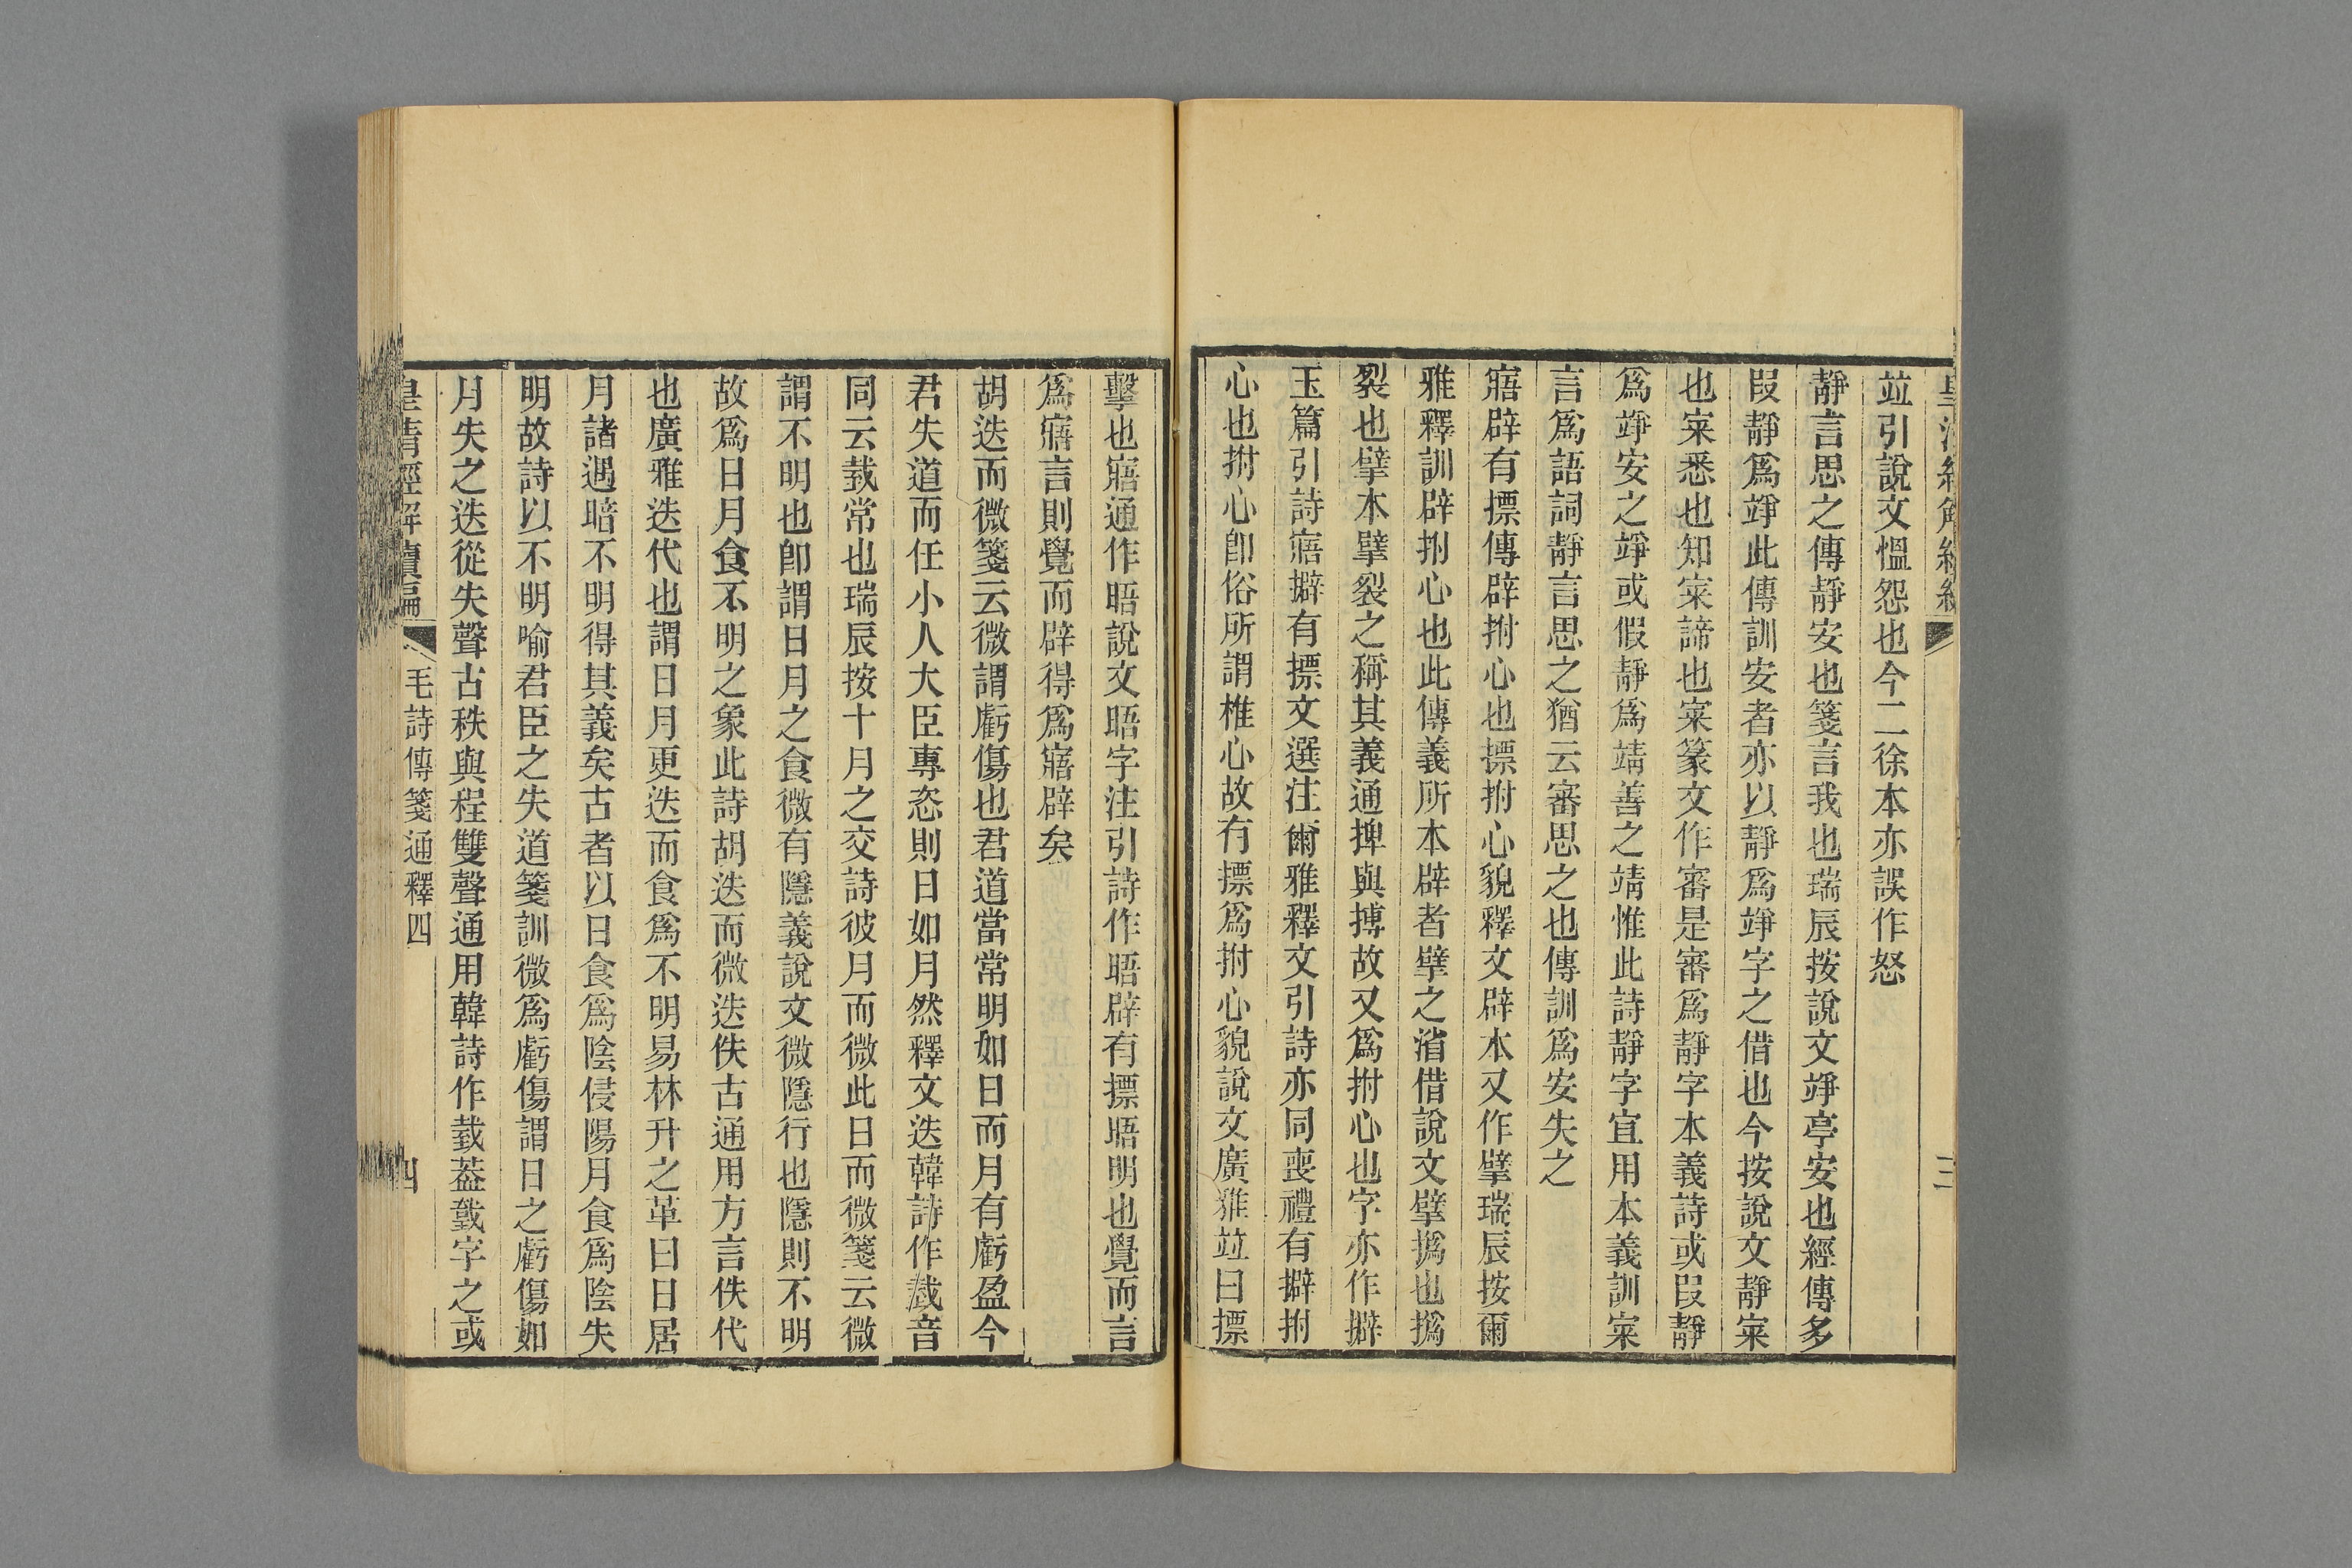 並引說文慍怨也今二徐本亦誤作怒
靜言思之傳靜安也箋言我也瑞辰按說文竫亭安也經傳多
叚靜爲竫此傳訓安者亦以靜爲竫字之借也今按說文靜寀
也寀悉也知寀諦也寀篆文作審是審爲靜字本義詩或叚靜
爲竫安之竫或假靜爲靖善之靖惟此詩靜字宜用本義訓寀
言爲語詞靜言思之猶云審思之也傳訓爲安失之
寤辟有摽傳辟拊心也摽拊心貌釋文辟本又作擘瑞辰按爾
雅釋訓辟拊心也此傳義所本辟者擘之渻借說文擘撝也撝
裂也擘本擘裂之稱其義通捭與搏故又爲拊心也字亦作擗
玉篇引詩寤擗有摽文選注爾雅釋文引詩亦同喪禮有擗拊
心也拊心卽俗所謂椎心故有摽爲拊心貌說文廣雅並曰摽
三
擊也寤通作晤說文晤字注引詩作晤辟有摽晤明也覺而言
爲寤言則覺而辟得爲寤辟矣
胡迭而微箋云微謂虧傷也君道當常明如日而月有虧盈今
君失道而任小人大臣專恣則日如月然釋文迭韓詩作臷音
同云臷常也瑞辰按十月之交詩彼月而微此日而微箋云微
謂不明也卽謂日月之食微有隱義說文微隱行也隱則不明
故爲日月食不明之象此詩胡迭而微迭佚古通用方言佚代
也廣雅迭代也謂日月更迭而食爲不明易林升之革曰日居
月諸遇暗不明得其義矣古者以日食爲陰侵陽月食爲陰失
明故詩以不明喻君臣之失道箋訓微爲虧傷謂日之虧傷如
月失之迭從失聲古秩與程雙聲通用韓詩作臷葢𢧜字之或
皇清經解續編　毛詩傳箋通釋四　四